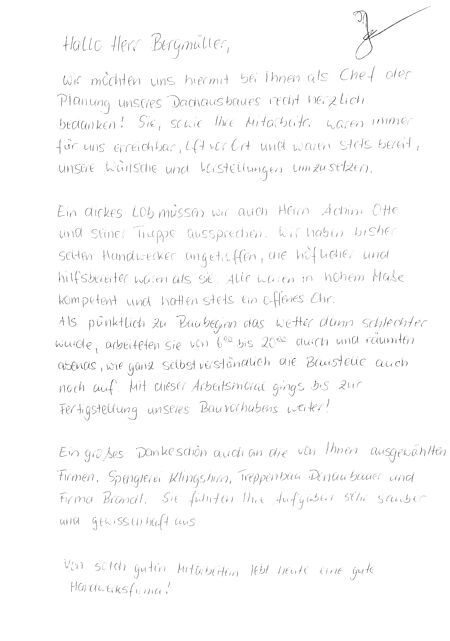 Hallo Herr Bergmüller,
Wir möchten uns hiermit bei Ihnen als Chef der
Planung unseres Dachausbaues recht herzlich
bedanken! Sie, sowie Ihre Mitarbeiter waren immer
für uns erreichbar, oft vor Ort und waren stets bereit,
unsere Wünsche und Vorstellungen umzusetzen.
Ein dickes Lob müssen wir auch Herrn Achim Otte
und seiner Truppe aussprechen. Wir haben bisher
selten Handwerker angetroffen, die höflicher und
hilfsbereiter waren als sie. Alle waren in hohem Maße
kompetent und hatten stets ein offenes Ohr.
Als pünktlich zu Baubeginn das Wetter dann schlechter
wurde, arbeiteten sie von 6⁰⁰ bis 20⁰⁰ durch und räumten
abends, wie ganz selbstverständlich die Baustelle auch
noch auf. Mit dieser Arbeitsmoral gings bis zur
Fertigstellung unseres Bauvorhabens weiter!
Ein großes Dankeschön auch an die von Ihnen ausgewählten
Firmen, Spenglerei Klingshirn, Treppenbau Donaubauer und
Firma Brandl. Sie führten Ihre Aufgaben sehr sauber
und gewissenhaft aus
Von solch guten Mitarbeitern lebt heute eine gute
Handwerksfirma!